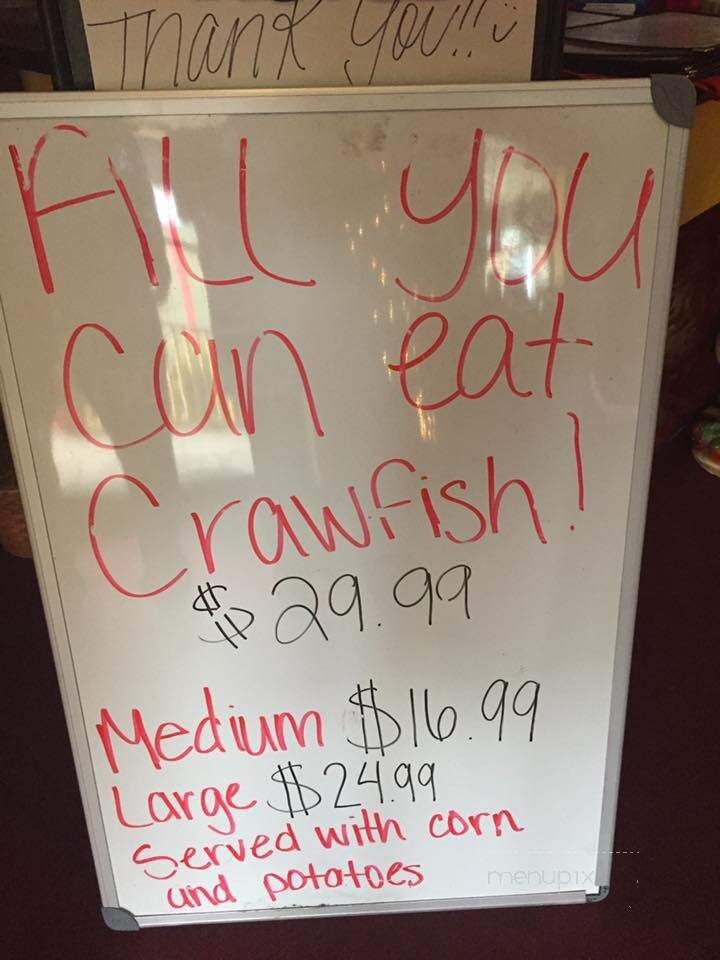 Thank You!!
Fill you
can eat
Crawfish!
$29.99
Medium $16.99
Large $24.99
Served with corn
and potatoes
menupix